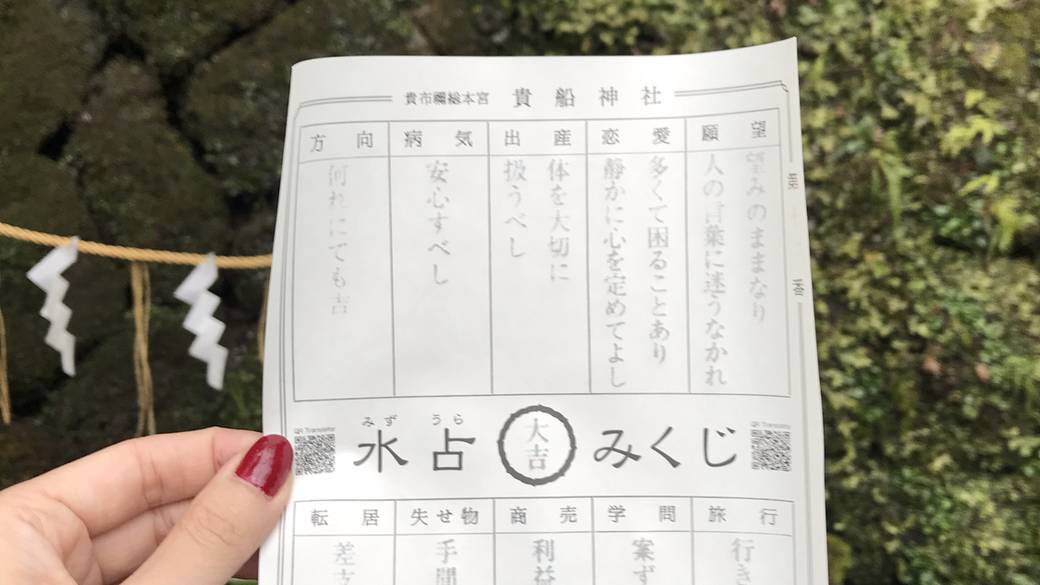 貴布禰総本宮 貴船神社
願望
望みのままなり
人の言葉に迷うなかれ
恋愛
多くて困ることあり
静かに心を定めてよし
出産
体を大切に
扱うべし
病気
安心すべし
方向
何れにても吉
QR Translator
みず うら
水占 大吉 みくじ
QR Translator
旅行
行き
学問
案ず
商売
利益
失せ物
手間
転居
差支